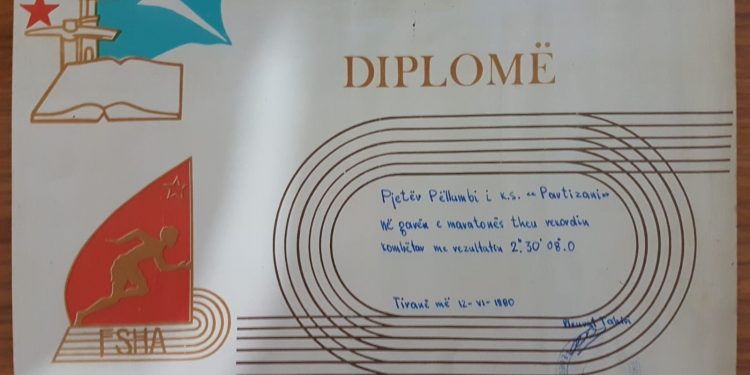 DIPLOMË
Pjetër Pëllumbi i k.s. "Partizani"
Në garën e maratonës theu rekordin
kombëtar me rezultatin 2° 30' 08".0
Tiranë më 12-VI-1980
FSHA